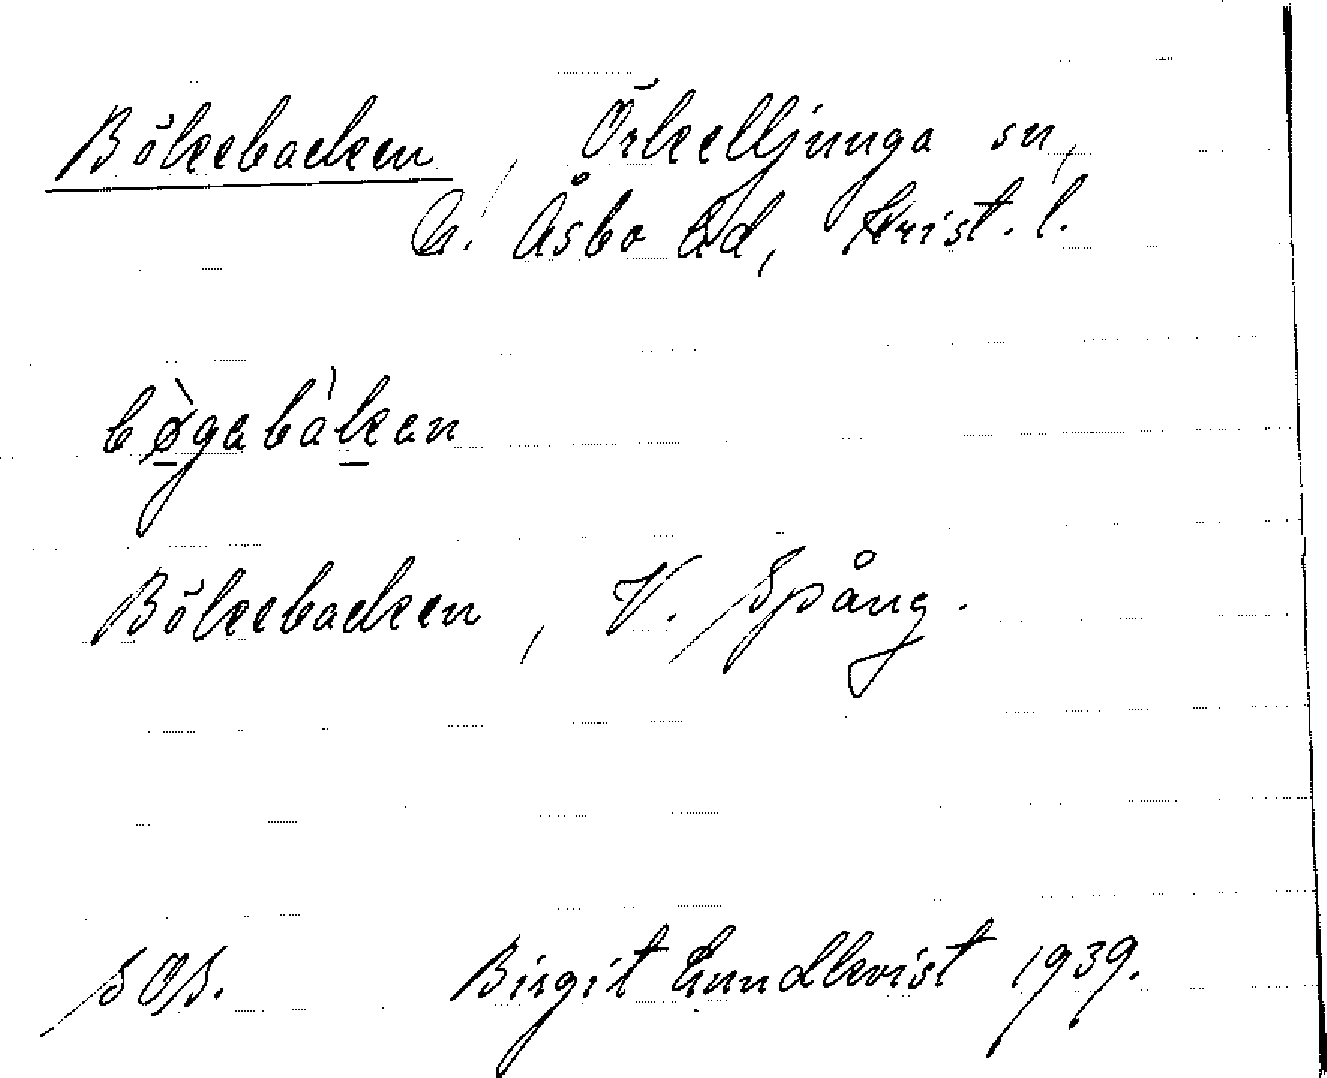 Bökebacken, Örkelljunga sn,
N. Åsbo hd, Krist. l.
bø̀gabàkan
Bökebacken, V. Spång.
SOS. Birgit Lundkvist 1939.